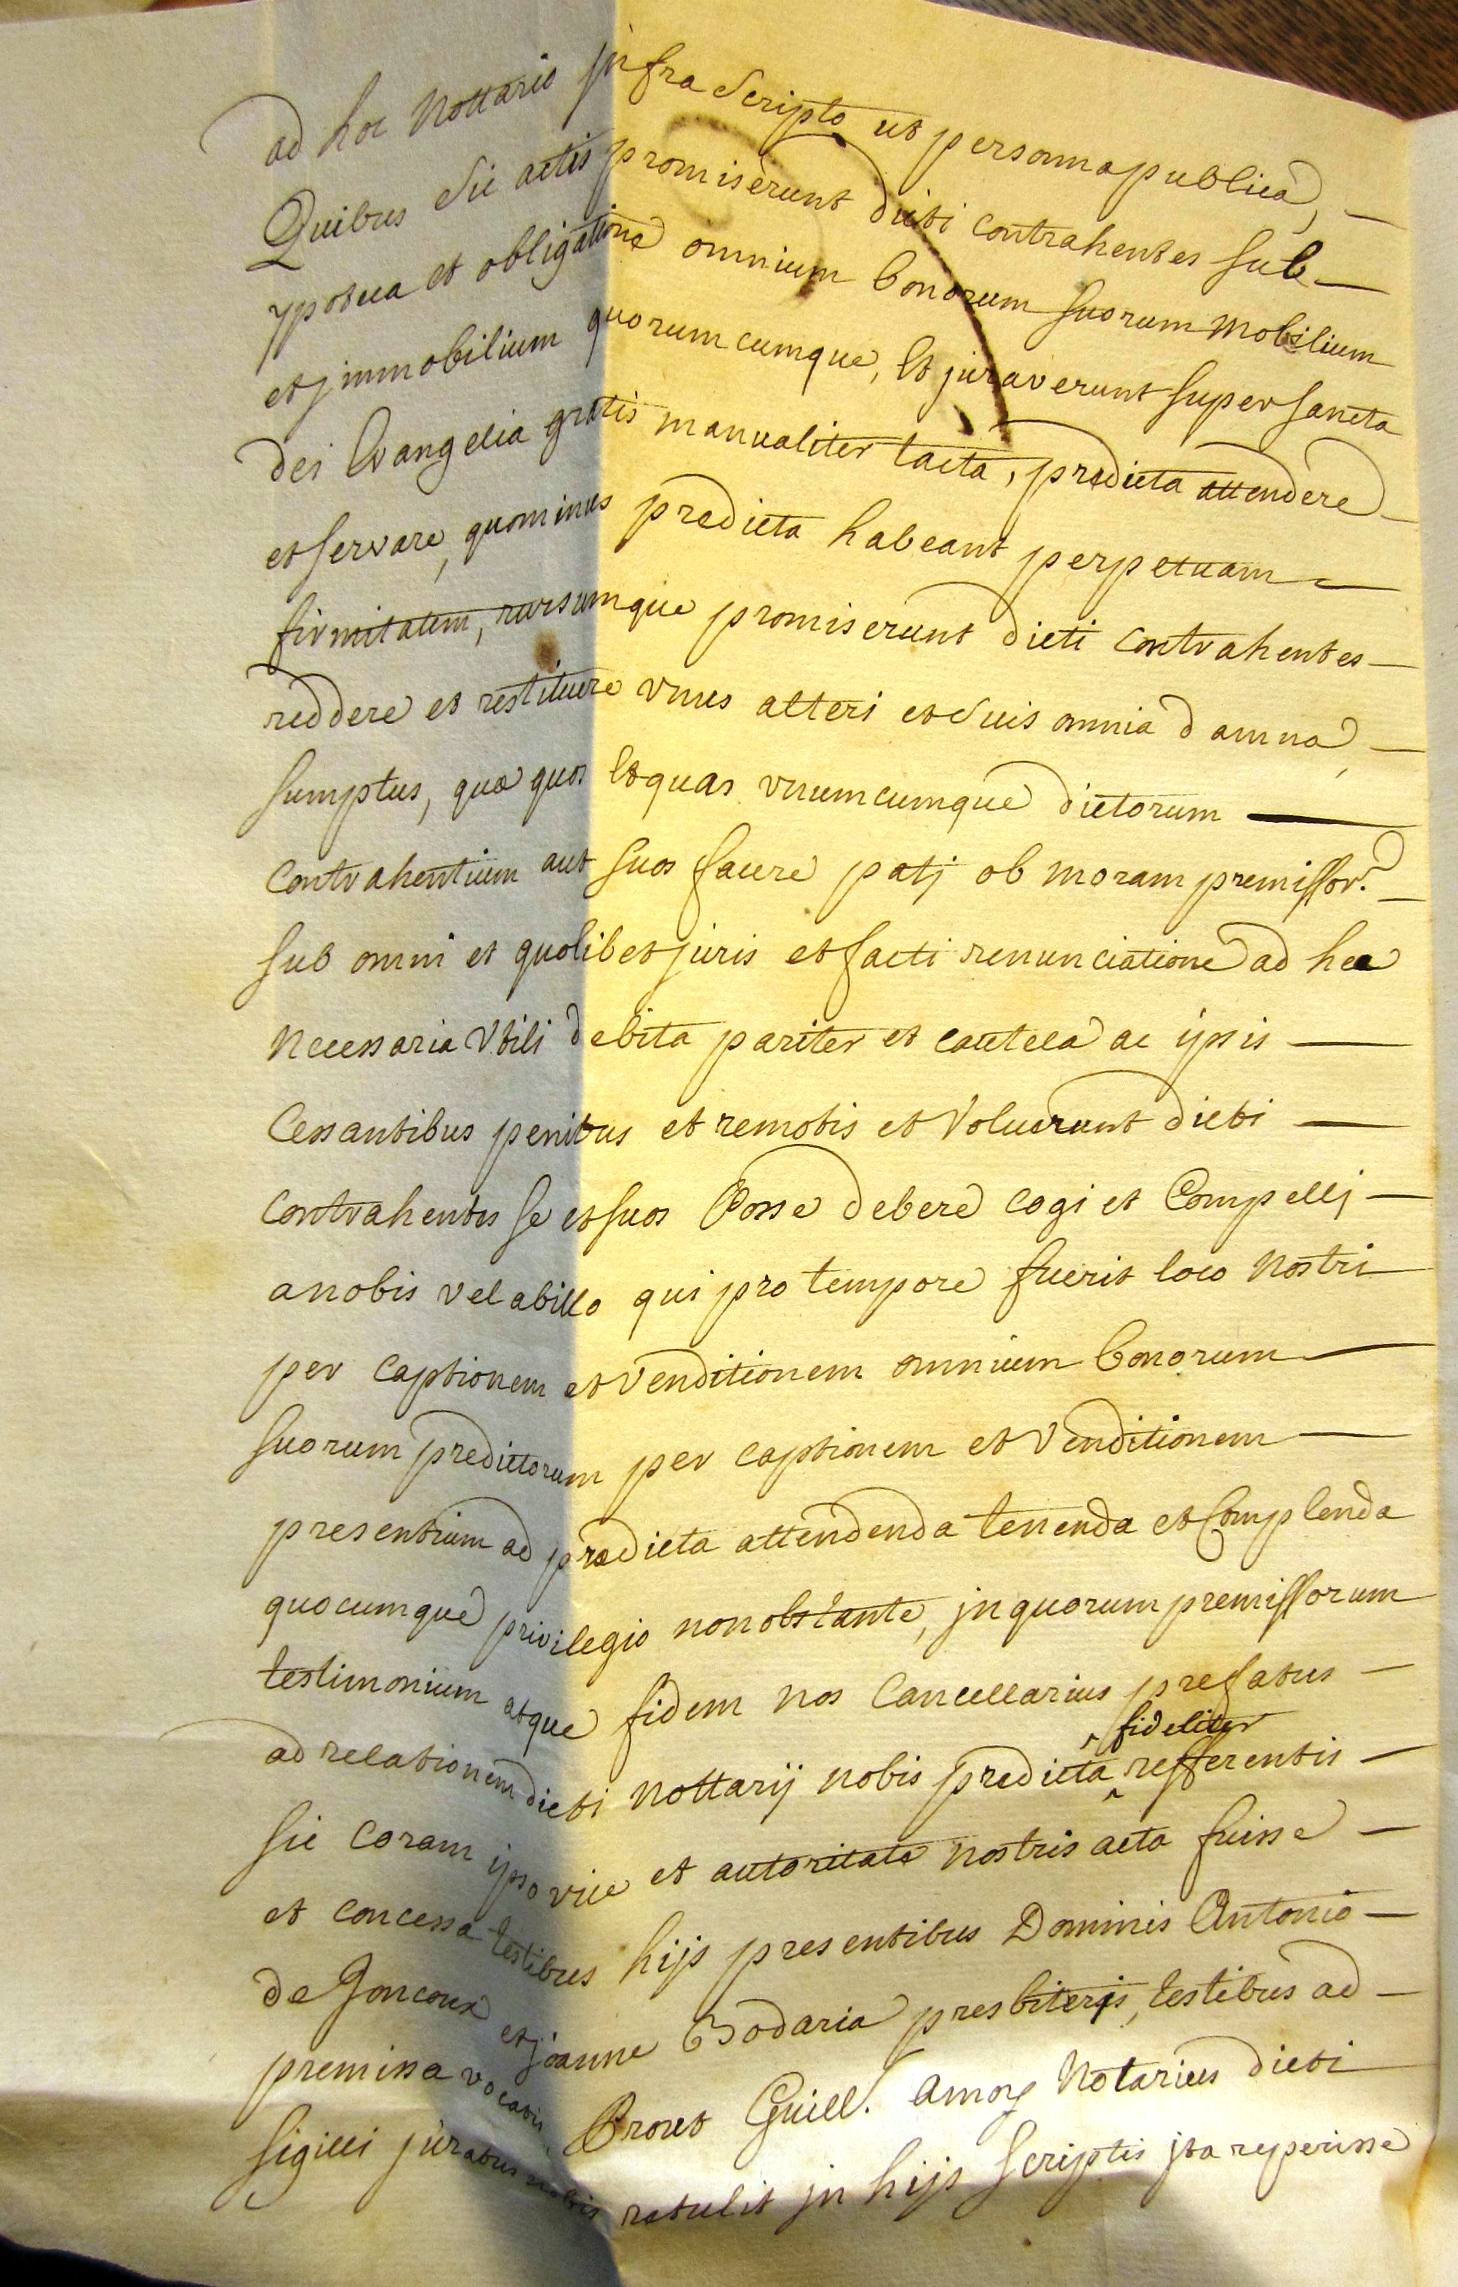 ad hoc Nottario jnfra Scripto ut personna publica, —
Quibus Sic actis promiserunt dicti contrahentes sub —
ypoteca et obligatione omnium bonorum suorum mobilium
et jmmobilium quorumcumque, Et juraverunt super sancta
dei Evangelia gratis manualiter tacta, predicta attendere —
et servare, quominus predicta habeant perpetuam —
firmitatem, rursumque promiserunt dicti contrahentes —
reddere et restituere vnus alteri et Suis omnia damna, —
sumptus, quæ quos Et quas vnumcumque dictorum —
contrahentium aut suos facere patj ob moram premissor. —
sub omni et quolibet juris et facti renunciatione ad hec
Necessaria Vtili debita pariter et cautela ac ipsis —
Cessantibus penitus et remotis et Voluerunt dicti —
Contrahentes se et suos Posse debere cogi et Compellj —
a nobis vel ab illo qui pro tempore fuerit loco Nostri
per captionem et venditionem omnium bonorum —
suorum predictorum per captionem et Venditionem —
presentium ad predicta attendenda tenenda et Complenda
quocumque privilegio nonobstante, jn quorum premissorum
testimonium atque fidem nos Cancellarius prefatus —
ad relationem dicti Nottarij nobis predicta fideliter refferentis —
sic coram ipso vice et autoritate nostris acta fuisse —
et concessa testibus hijs presentibus Dominis Antonio —
de Goncoux et joanne Bodaria presbiteris, testibus ad —
premissa vocatis, Prout Guill. Amoy Notarius dicti
sigilli juratus nobis retulit jn hijs scriptis jta reperisse